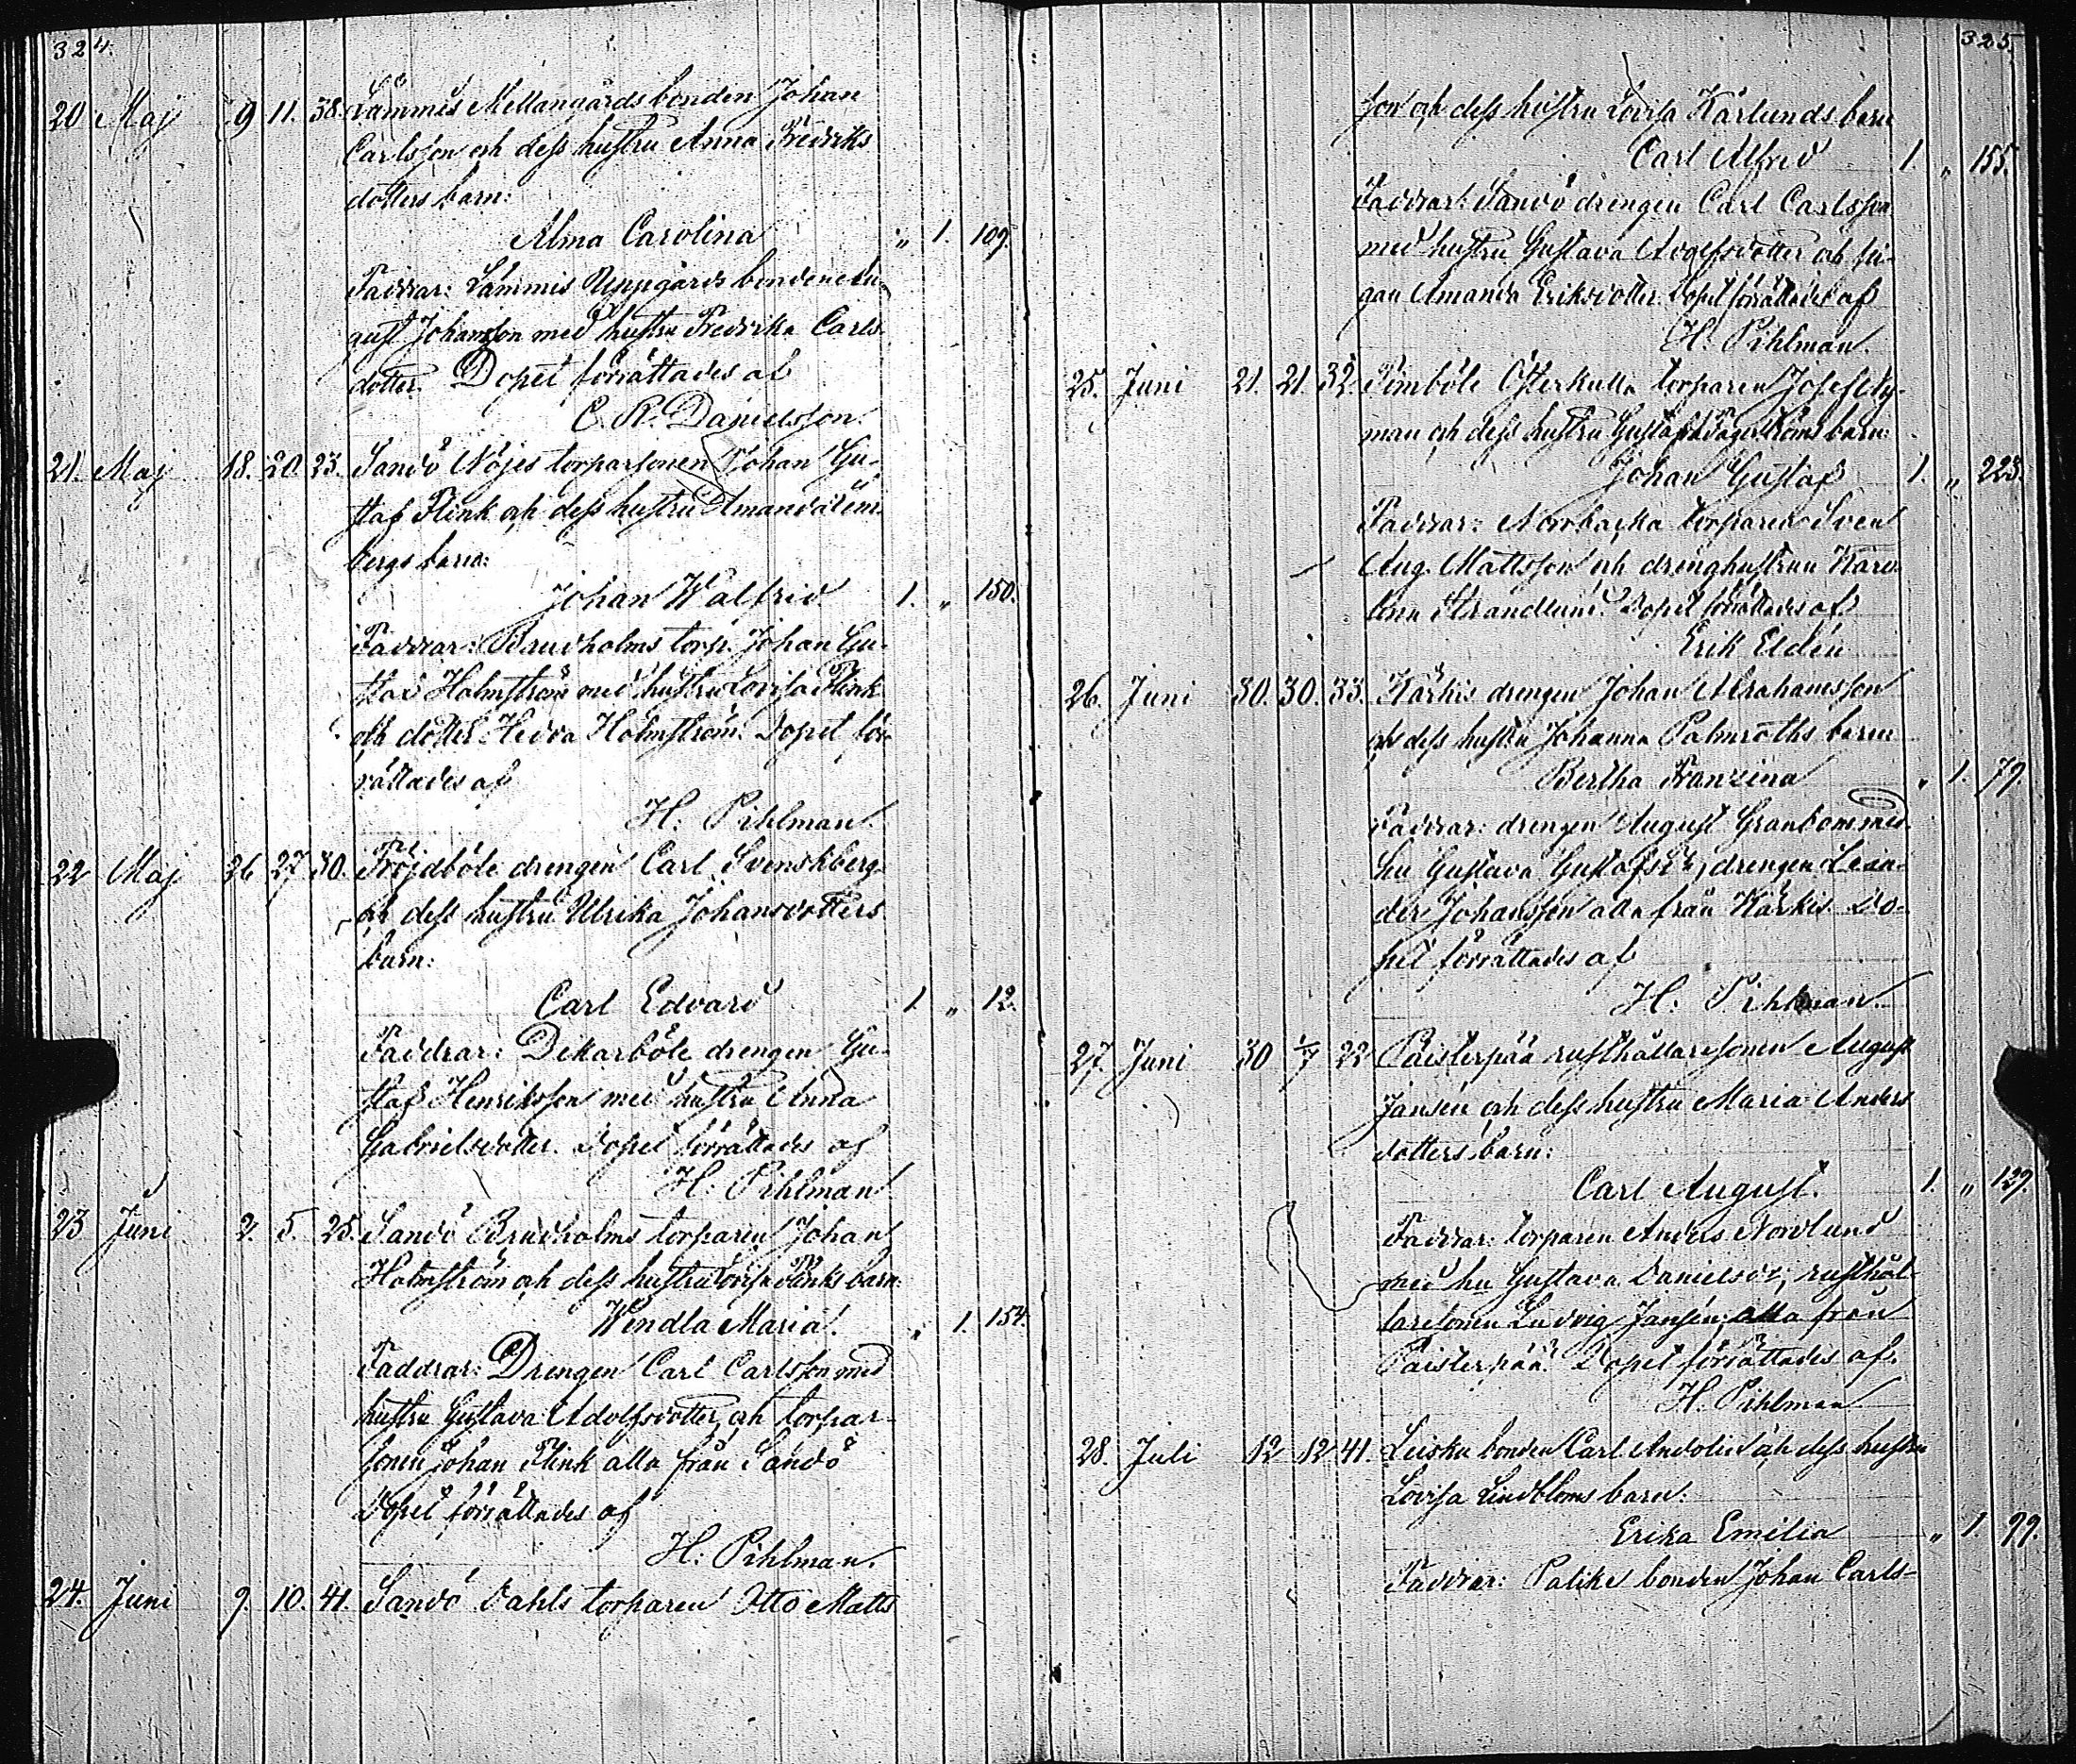 324.
20 Maj 9 11. 38. Lammis Mellangårds bonden Johan
Carlsson och dess hustru Anna Fredriks
dotters barn:
Alma Carolina „ 1. 109.
Faddrar: Lammis Uppgårds bonden Au-
gust Johansson med hustru Fredrika Carls
dotter. Dopet förrättades af
C. R. Danielsson.
21. Maj 18. 20. 23. Sandö Nöjes torparsonen Johan Gu-
staf Flink och dess hustru Amanda
bergs barn:
Johan Walfrid 1. „ 150.
Faddrar: Brudholms torp. Johan Gu-
staf Holmström med hustru Lovisa Flink
och dotter Hedda Holmström. Dopet för-
rättades af
H. Pihlman.
22 Maj 26 27 30. Fröjdböle drengen Carl Svenskberg
och dess hustru Ulrika Johansdotters
barn:
Carl Edvard 1 „ 12.
Faddrar: Dekarböle drengen Gu-
staf Henriksson med hustru Anna
Gabrielsdotter. Dopet förrättades af
H. Pihlman
23 Juni 2. 5. 25. Sandö Brudholms torparen Johan
Holmström och dess hustru Lovisa Flinks barn
Wendla Maria. „ 1. 154.
Faddrar: Drengen Carl Carlsson med
hustru Gustava Adolfsdotter, och torpar-
sonen Johan Flink alla från Sandö
Dopet förrättades af
H. Pihlman.
24. Juni 9. 10. 41. Sandö Dahls torparen Otto Matts
325.
son och dess hustru Lovisa Kärlunds barn
Carl Alfred 1. „ 155.
Faddrar: Sandö drengen Carl Carlsson
med hustru Gustava Adolfsdotter och pi-
gan Amanda Eriksdotter. Dopet förrättades af
H. Pihlman.
25. Juni 21. 21. 32. Pemböle Österkulla torparen Josef Ny-
man och dess hustru Gustafva Fagerströms barn:
Johan Gustaf 1. „ 223.
Faddrar: Norrbacka torparen Sven
Aug. Mattsson och drenghustrun Karo-
lina Strandlund. Dopet förrättades af
Erik Eldén
26. Juni 30. 30. 33. Kärkis drengen Johan Abrahamsson
och dess hustru Johanna Palmroths barn
Bertha Franzina „ 1. 79.
Faddrar: drengen August Granbom med
hu Gustava Gustafsdr, drengen Lean-
der Johansson alla från Kärkis. Do-
pet förrättades af
H. Pihlman.
27. Juni 30 1/7 22 Paisterpää rusthållaresonen August
Jansén och dess hustru Maria Anders
dotters barn:
Carl August. 1. „ 129.
Faddrar: torparen Anders Nordlund
med hu Gustava Danielsdr, rusthål-
laresonen Ludvig Jansén; alla från
Paisterpää. Dopet förrättades af
H. Pihlman
28. Juli 12 12 41. Leisku bonden Carl Andolin och dess hustru
Lovisa Lindbloms barn:
Erika Emilia „ 1. 99.
Faddrar: Palike bonden Johan Carls-